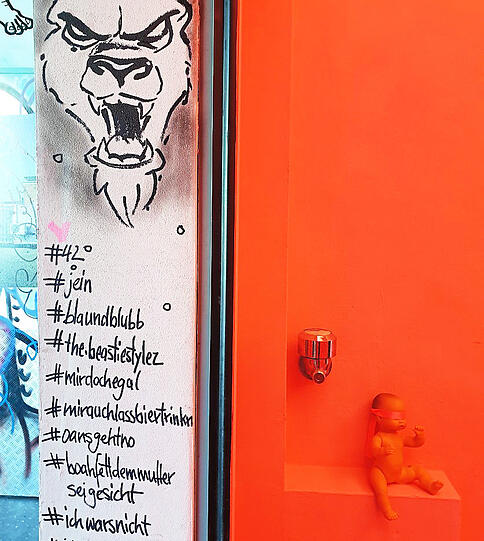 #42°
#jein
#blaundblubb
#the.beastiestylez
#mirdochegal
#mirauchlassbiertrinkn
#oansgehtno
#boahfettdemmutter
seigesicht
#ichwarsnicht